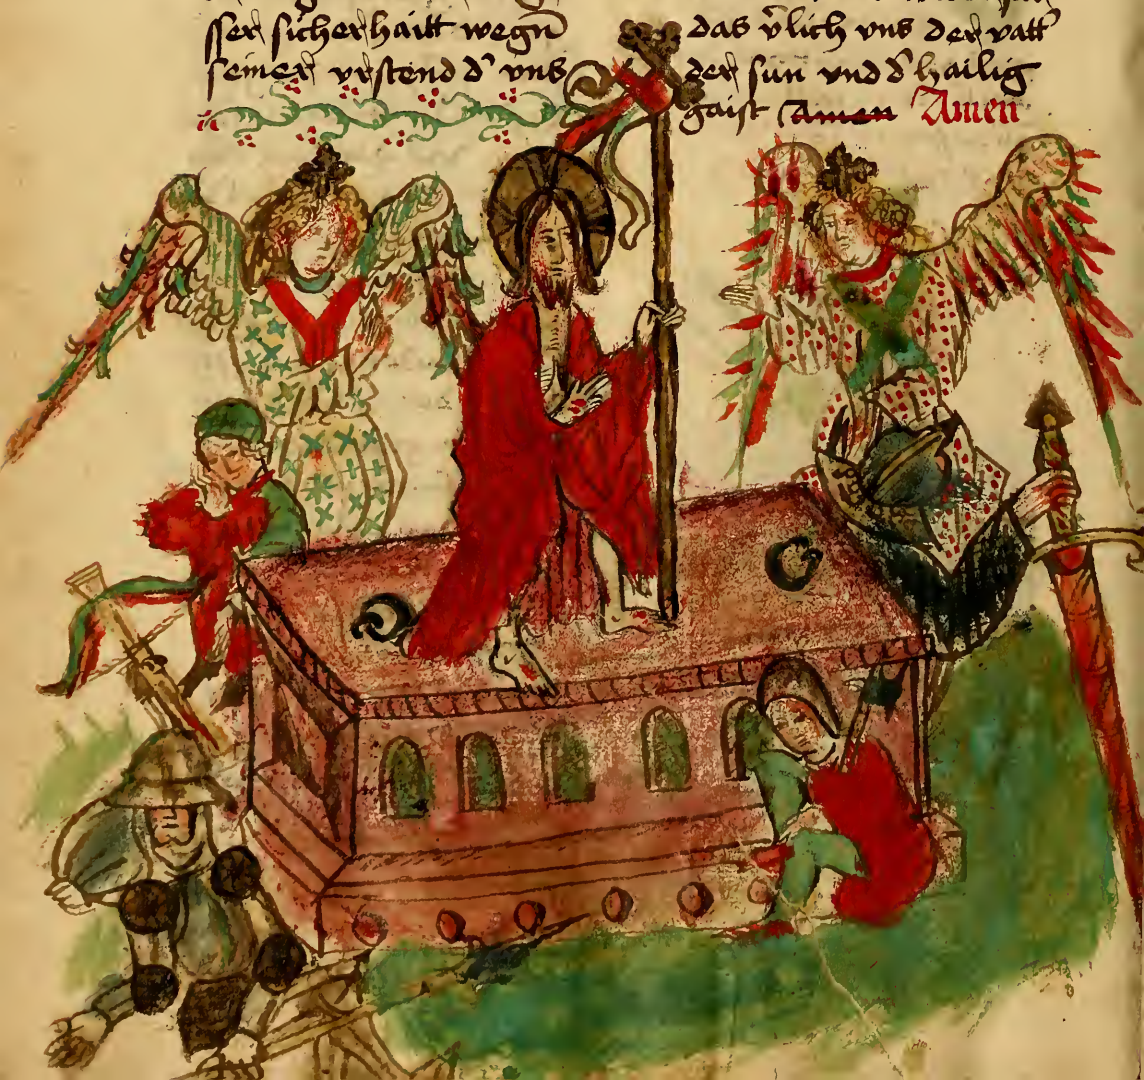 sser sicherhaitt wegn̄
seiner vrstend d' vns
das v̄lich vns der vatt'
der sun vnd d' hailig
gaist Amen Amen